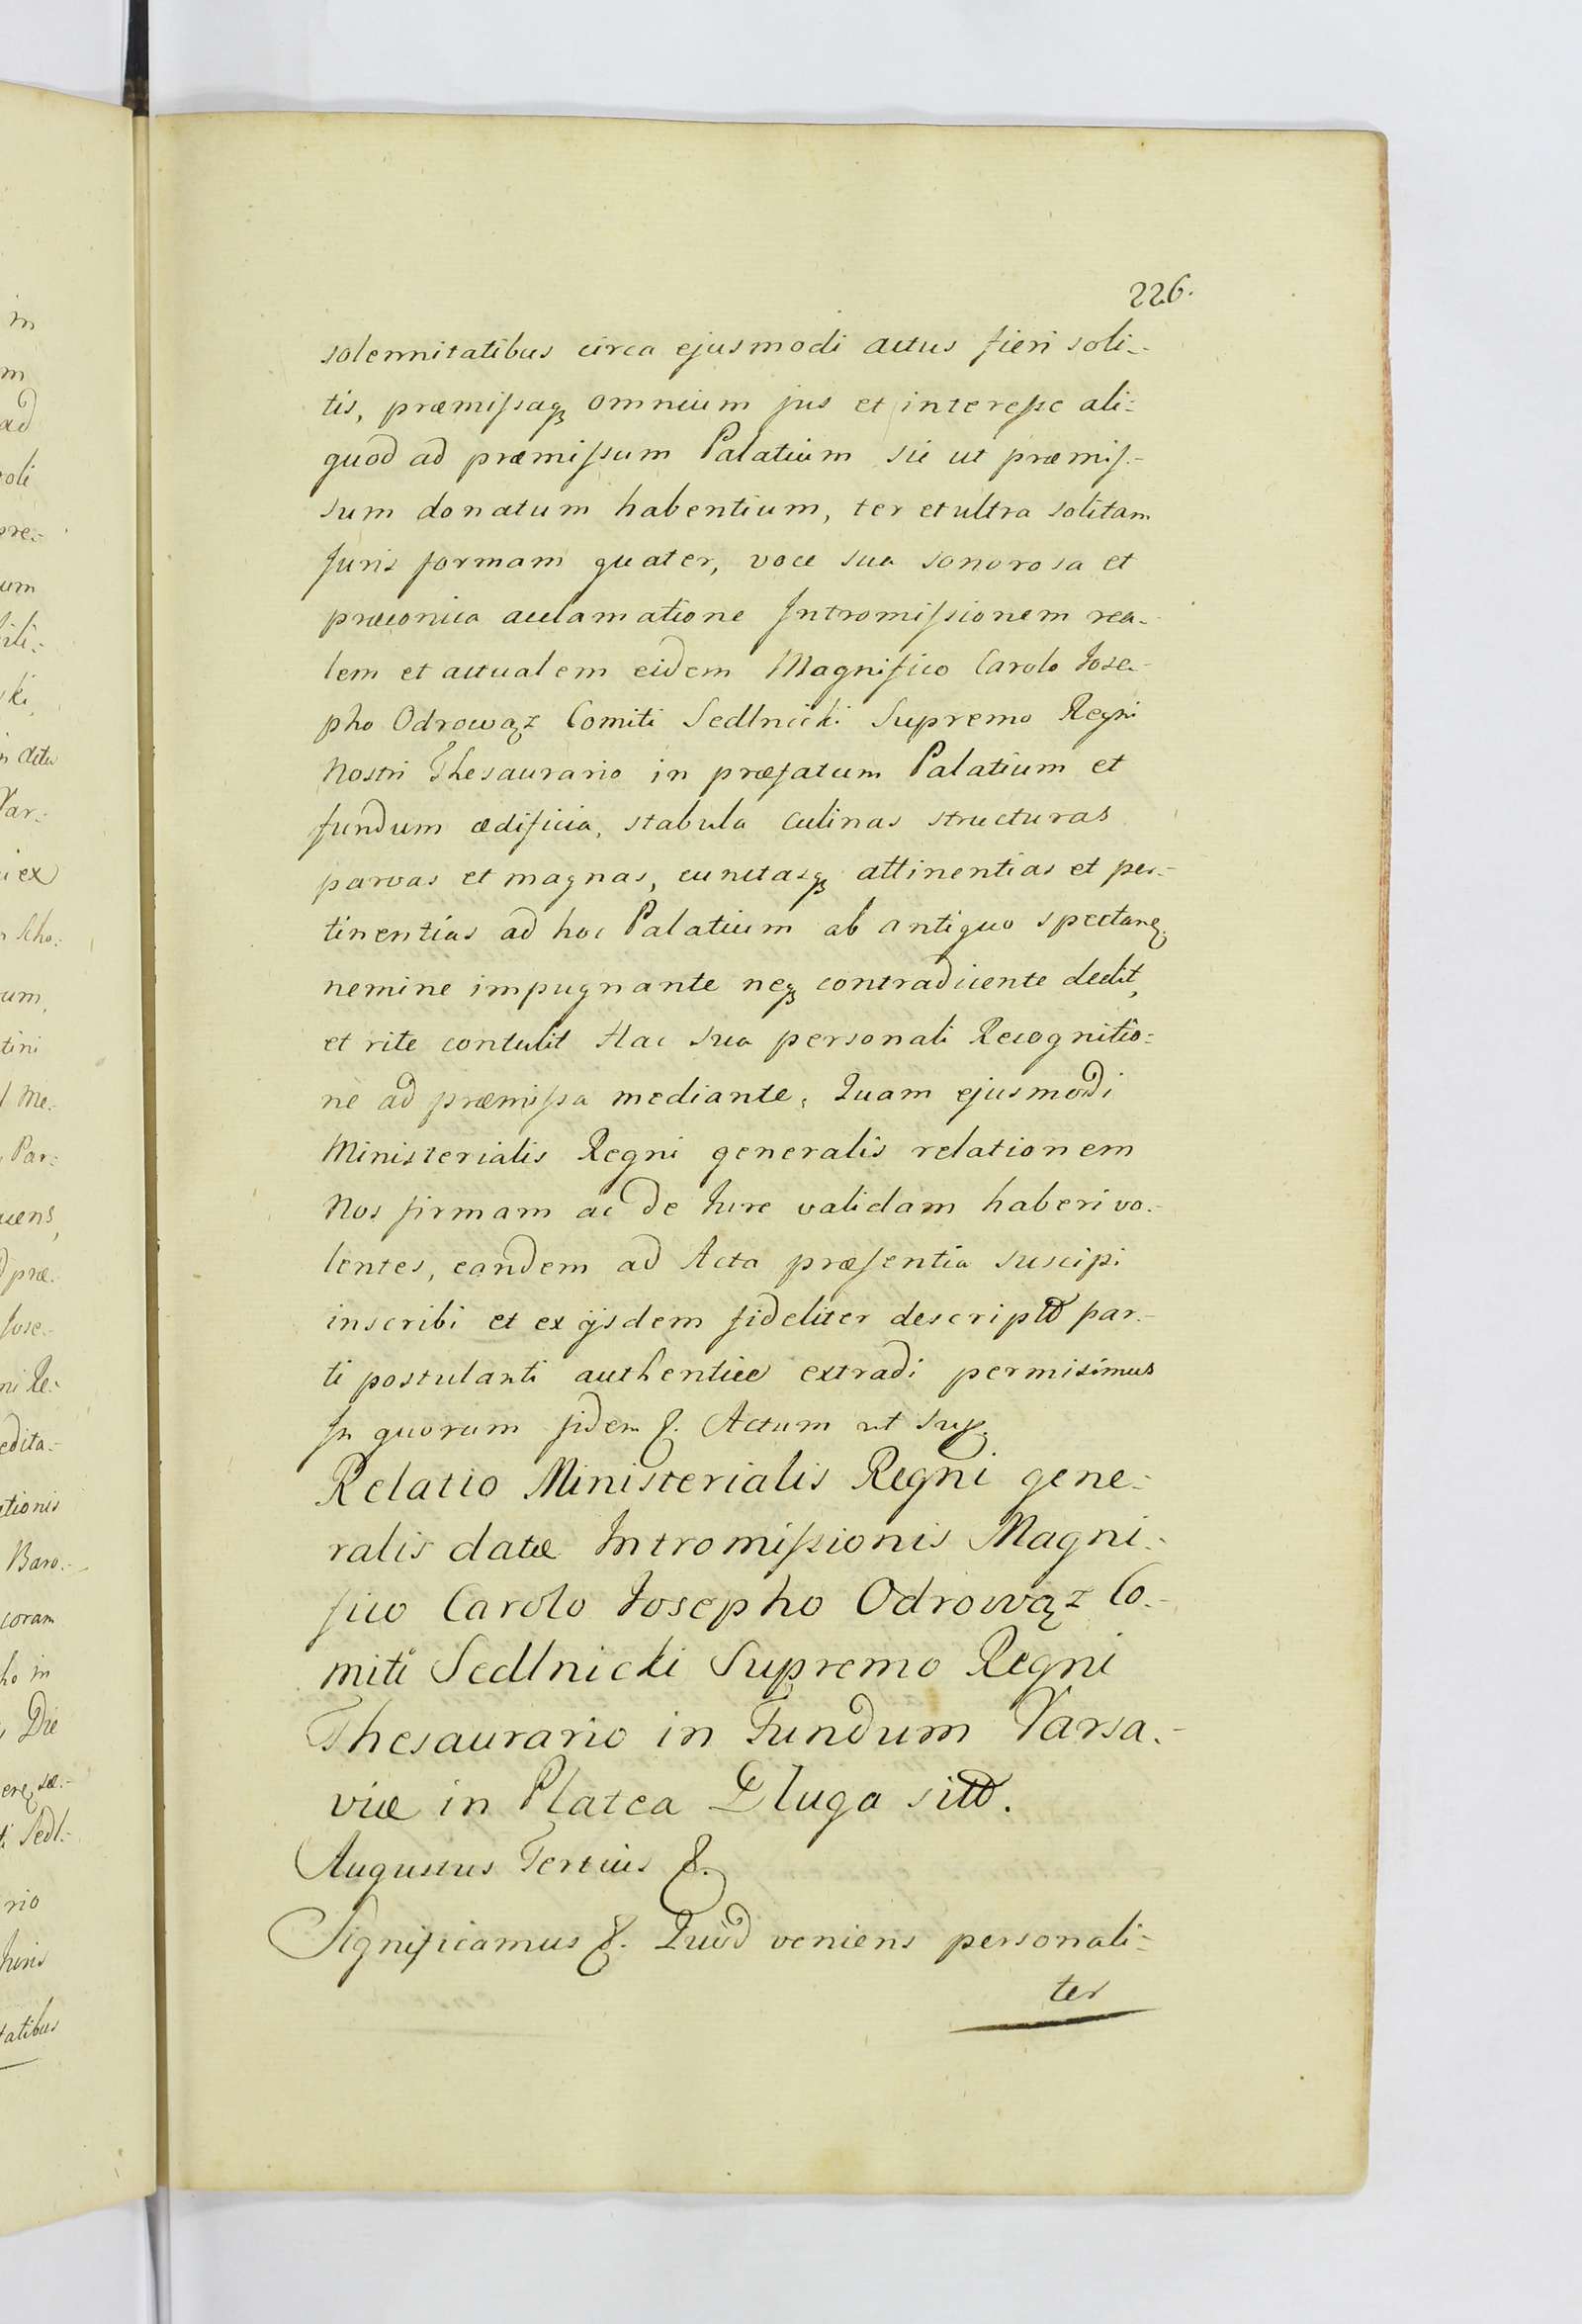 226.
solennitatibus circa ejusmodi actus fieri soli-
tis, præmissaq3 omnium jus et interesse ali-
quod ad præmissum Palatium sic ut præmis-
sum donatum habentium, ter et ultra solitam
Juris formam quater, voce sua sonorosa et
præconica acclamatione Intromissionem rea-
lem et actualem eidem Magnifico Carolo Jose-
pho Odrowąz Comiti Sedlnicki Supremo Regni
Nostri Thesaurario in præfatum Palatium et
fundum ædificia, stabula culinas structuras
parvas et magnas, cunctasq3 attinentias et per-
tinentias ad hoc Palatium ab antiquo spectanę
nemine impugnante neq3 contradicente dedit,
et rite contulit Hac sua personali Recognitio-
ne ad præmissa mediante, Quam ejusmodi
Ministerialis Regni generalis relationem
Nos firmam ac de Jure validam haberi vo-
lentes, eandem ad Acta præsentia suscipi
inscribi et ex ijsdem fideliter descriptã par-
ti postulanti authentice extradi permisimus
In quorum fidem &. Actum ut sup.
Relatio Ministerialis Regni gene-
ralis datæ Intromissionis Magni-
fico Carolo Josepho Odrowąz Co-
miti Sedlnicki Supremo Regni
Thesaurario in Fundum Varsa-
viæ in Platea Dluga sitũ.
Augustus Tertius &.
Significamus &. Quod veniens personali-
ter